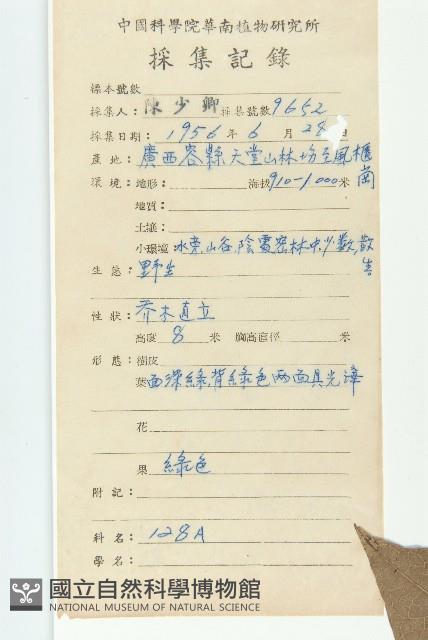 中國科學院華南植物研究所
採集記錄
標本號數
採集人：陳少卿 採集號數 9652
採集日期：1956 年 6 月 28 日
產地：廣西容縣天堂山林場至風櫃崗
環境：地形： 海拔 910-1000 米
地質：
土壤：
小環境 水旁,山谷,陰處密林中,少數,散生
生態：野生
性狀：乔木直立
高度 8 米 胸高直徑 米
形態：樹皮
葉 面深綠,背綠色两面具光澤
花
果 綠色
附記：
科名：128A
學名：
國立自然科學博物館
NATIONAL MUSEUM OF NATURAL SCIENCE